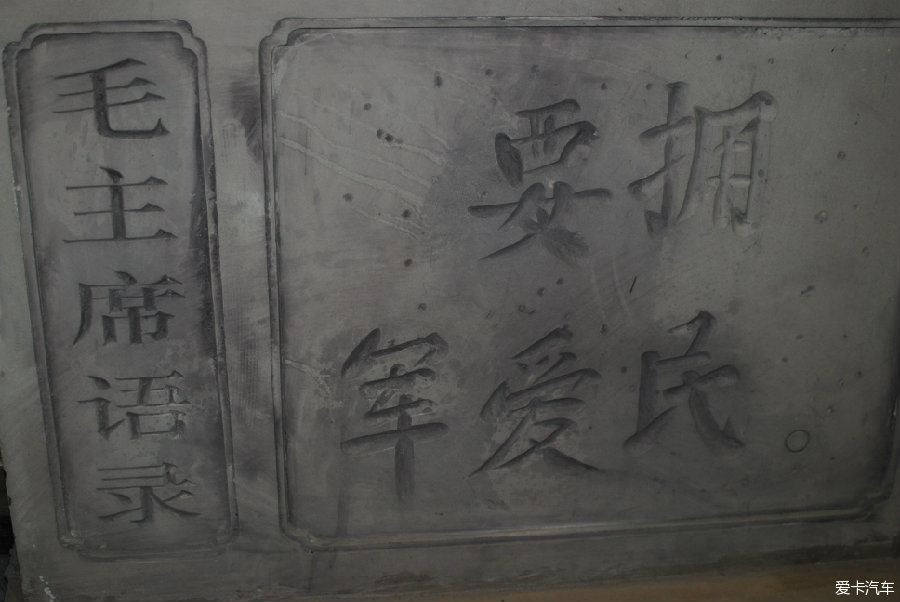 毛主席语录
要拥
军爱民。
爱卡汽车